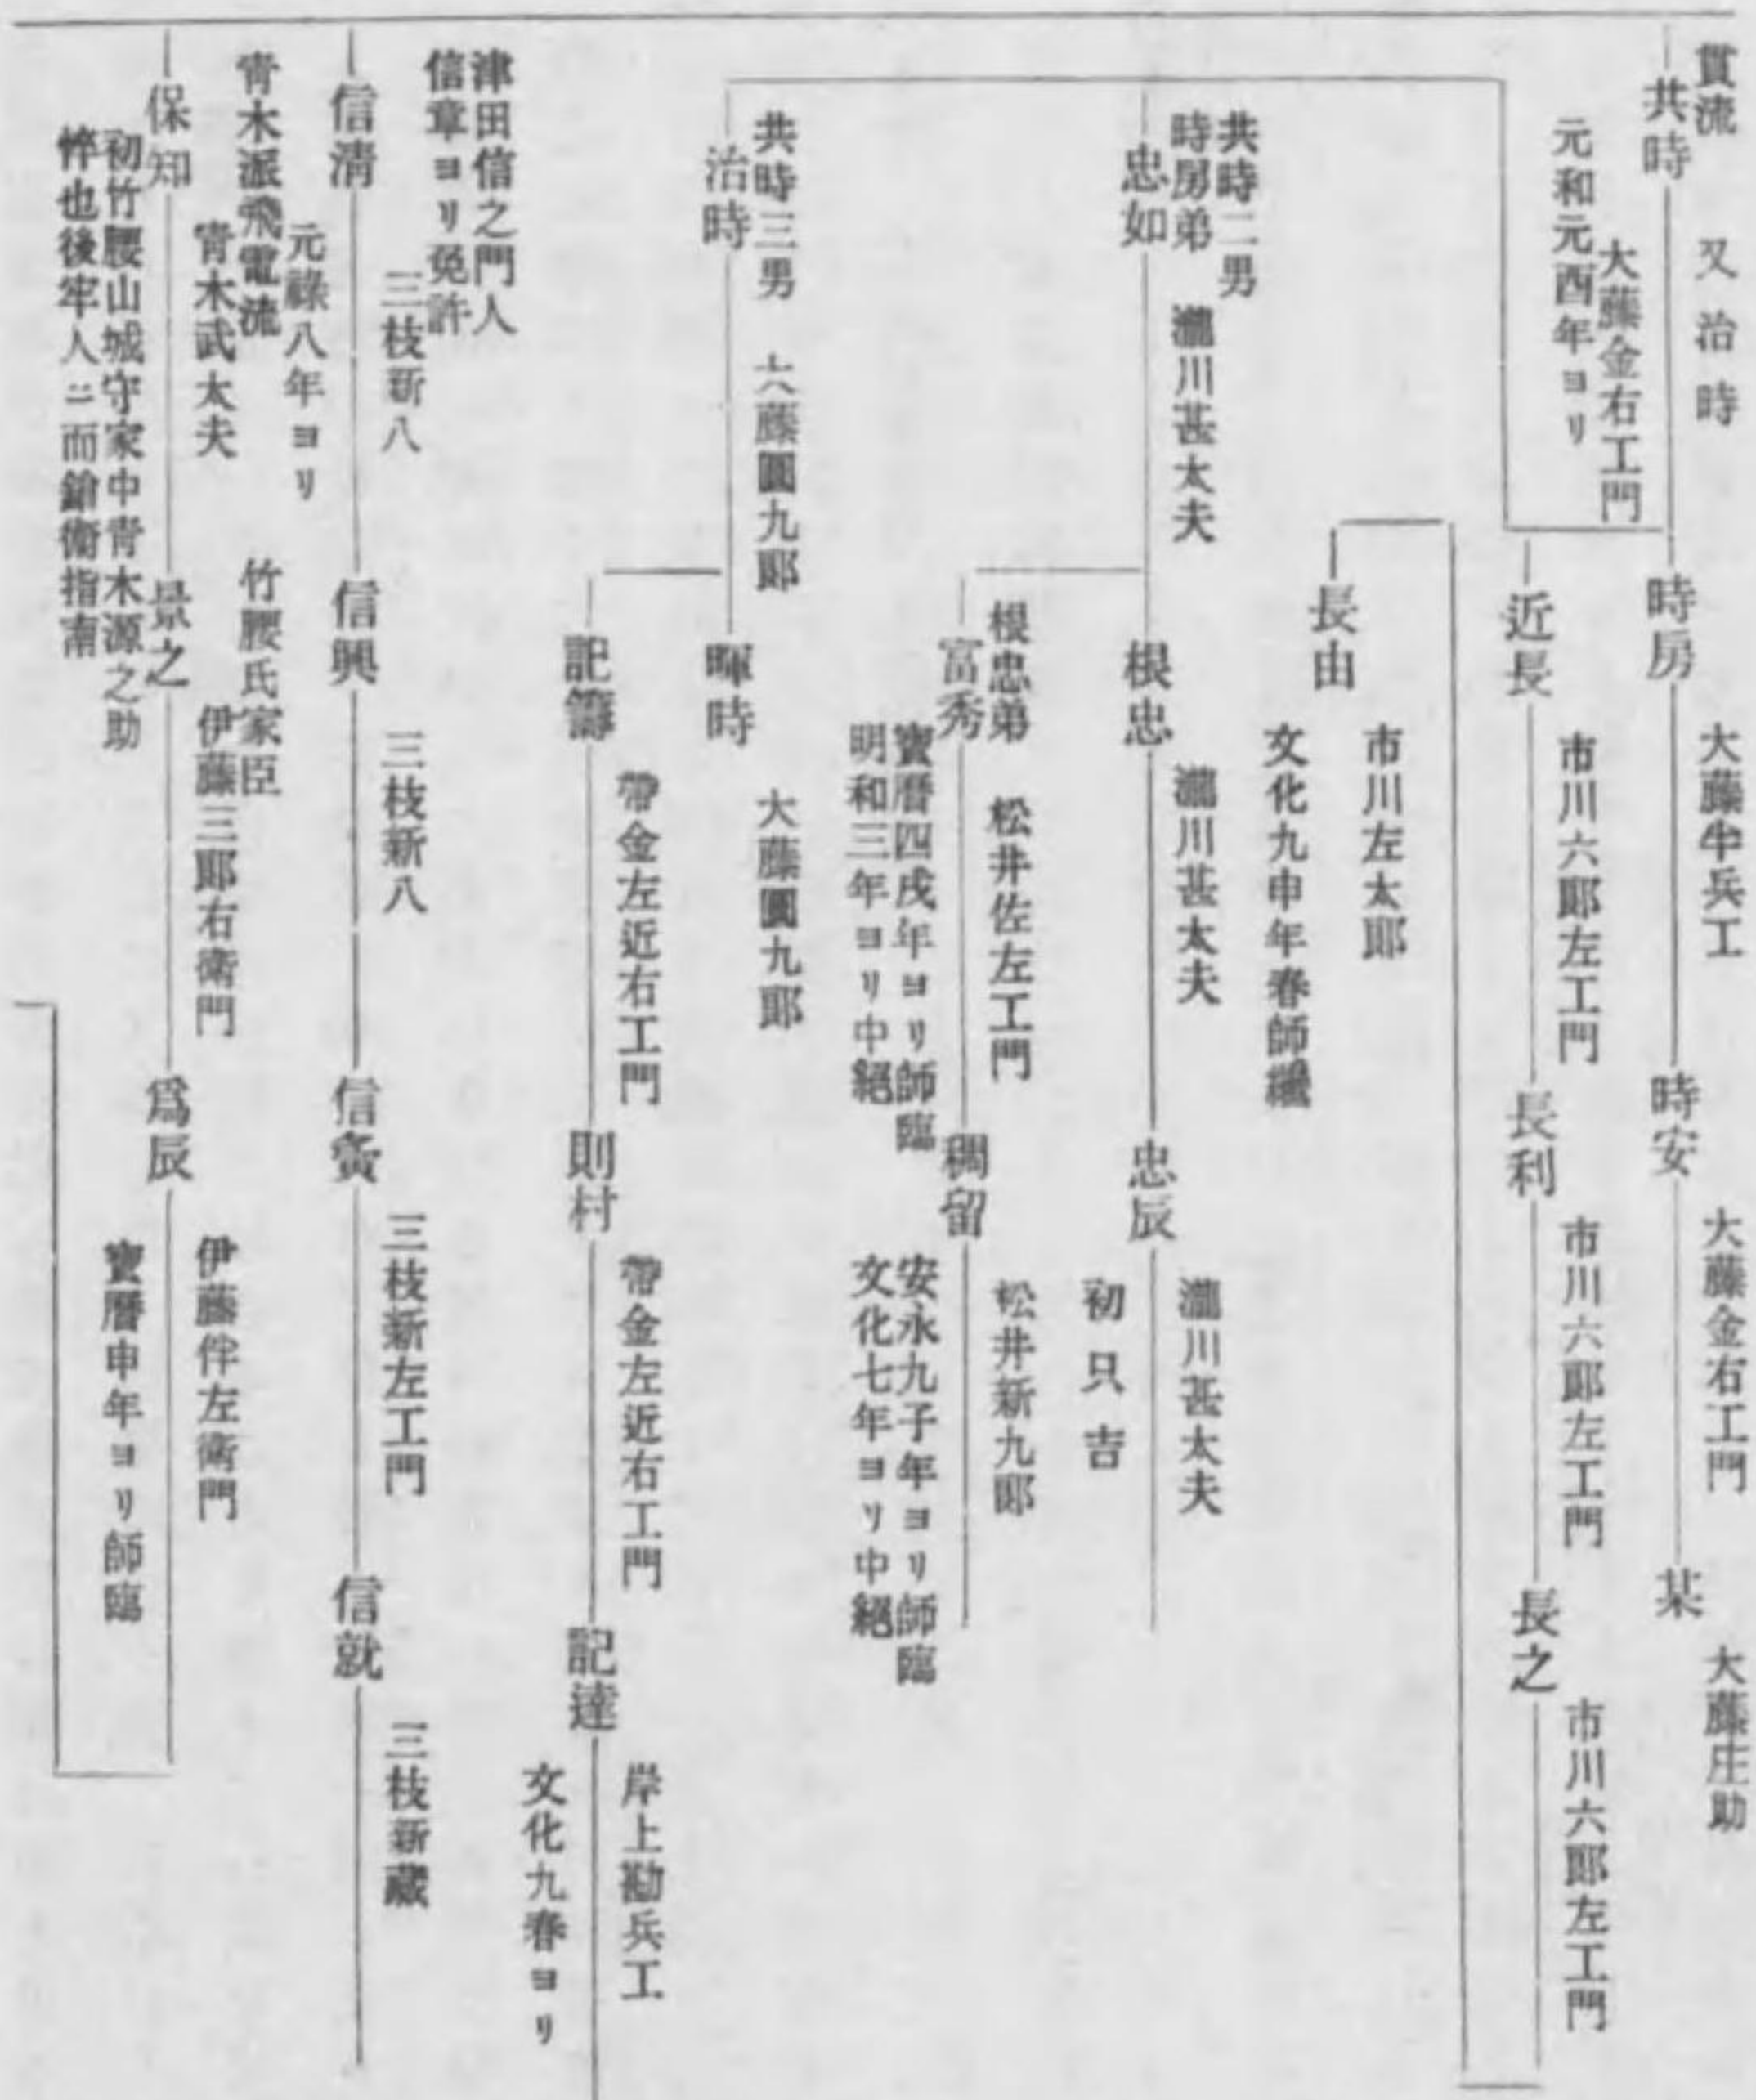 貫流
又治時
共時
大藤金右工門
元和元酉年ヨリ
時房
大藤半兵工
時安
大藤金右工門
某
大藤庄助
近長
市川六郎左工門
長利
市川六郎左工門
長之
市川六郎左工門
長由
市川左太郎
文化九申年春師繼
共時二男
時房弟
忠如
瀧川甚太夫
根忠
瀧川甚太夫
忠辰
瀧川甚太夫
初只吉
根忠弟
富秀
松井佐左工門
寳暦四戌年ヨリ師臨
明和三年ヨリ中絕
稠留
松井新九郎
安永九子年ヨリ師臨
文化七年ヨリ中絕
共時三男
治時
藤圓九郎
暉時
大藤圓九郎
記籌
帶金左近右工門
則村
帶金左近右工門
記達
岸上勘兵工
文化九春ヨリ
津田信之門人
信章ヨリ免許
信清
三枝新八
元祿八年ヨリ
信興
三枝新八
信賓
三枝新左工門
信就
三枝新藏
青木派飛電流
保知
青木武太夫
初竹腰山城守家中青木源之助
悴也後牢人ニ而鎗術指南
景之
竹腰氏家臣
伊藤三郎右衛門
爲辰
伊藤伴左衛門
寳暦申年ヨリ師臨